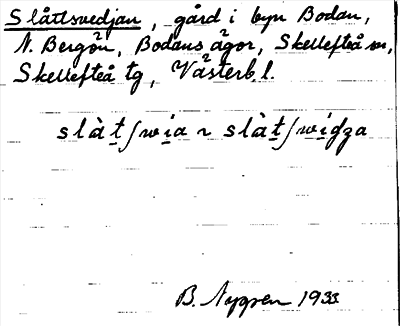 Slåttsvedjan, gård i byn Bodan,
N. Bergön, Bodans ägor, Skellefteå sn,
Skellefteå tg, Västerb. l.
slàt̲ʃwi̲a ~ slàt̲ʃwi̲dʒa
B. Nygren 1933